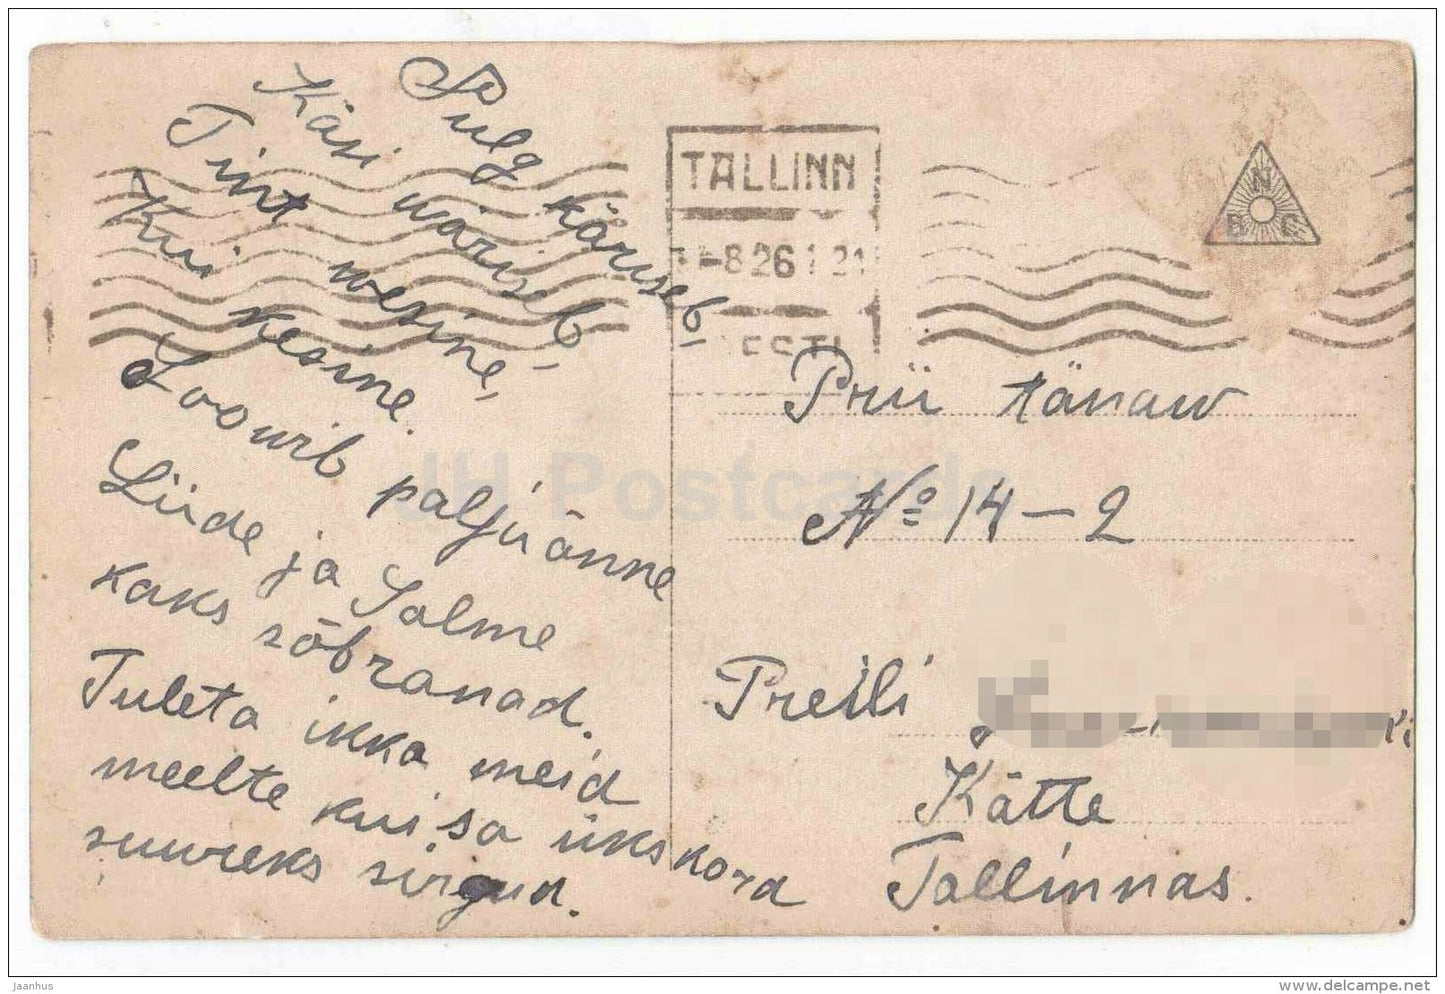 Sulg käriseb,
Käsi wäriseb,
Tint wesine,
Kui kesine.
Soowib palju õnne
Liide ja Salme
kaks sõbranad.
Tuleta ikka meid
meelte kui sa ükskord
suureks sirgud.
TALLINN
-8 26
EESTI
N
B C
Prii tänaw
No 14-2
Preili
Kätte
Tallinnas.
JH Postcards
Jaanhus
www.delcampe.net